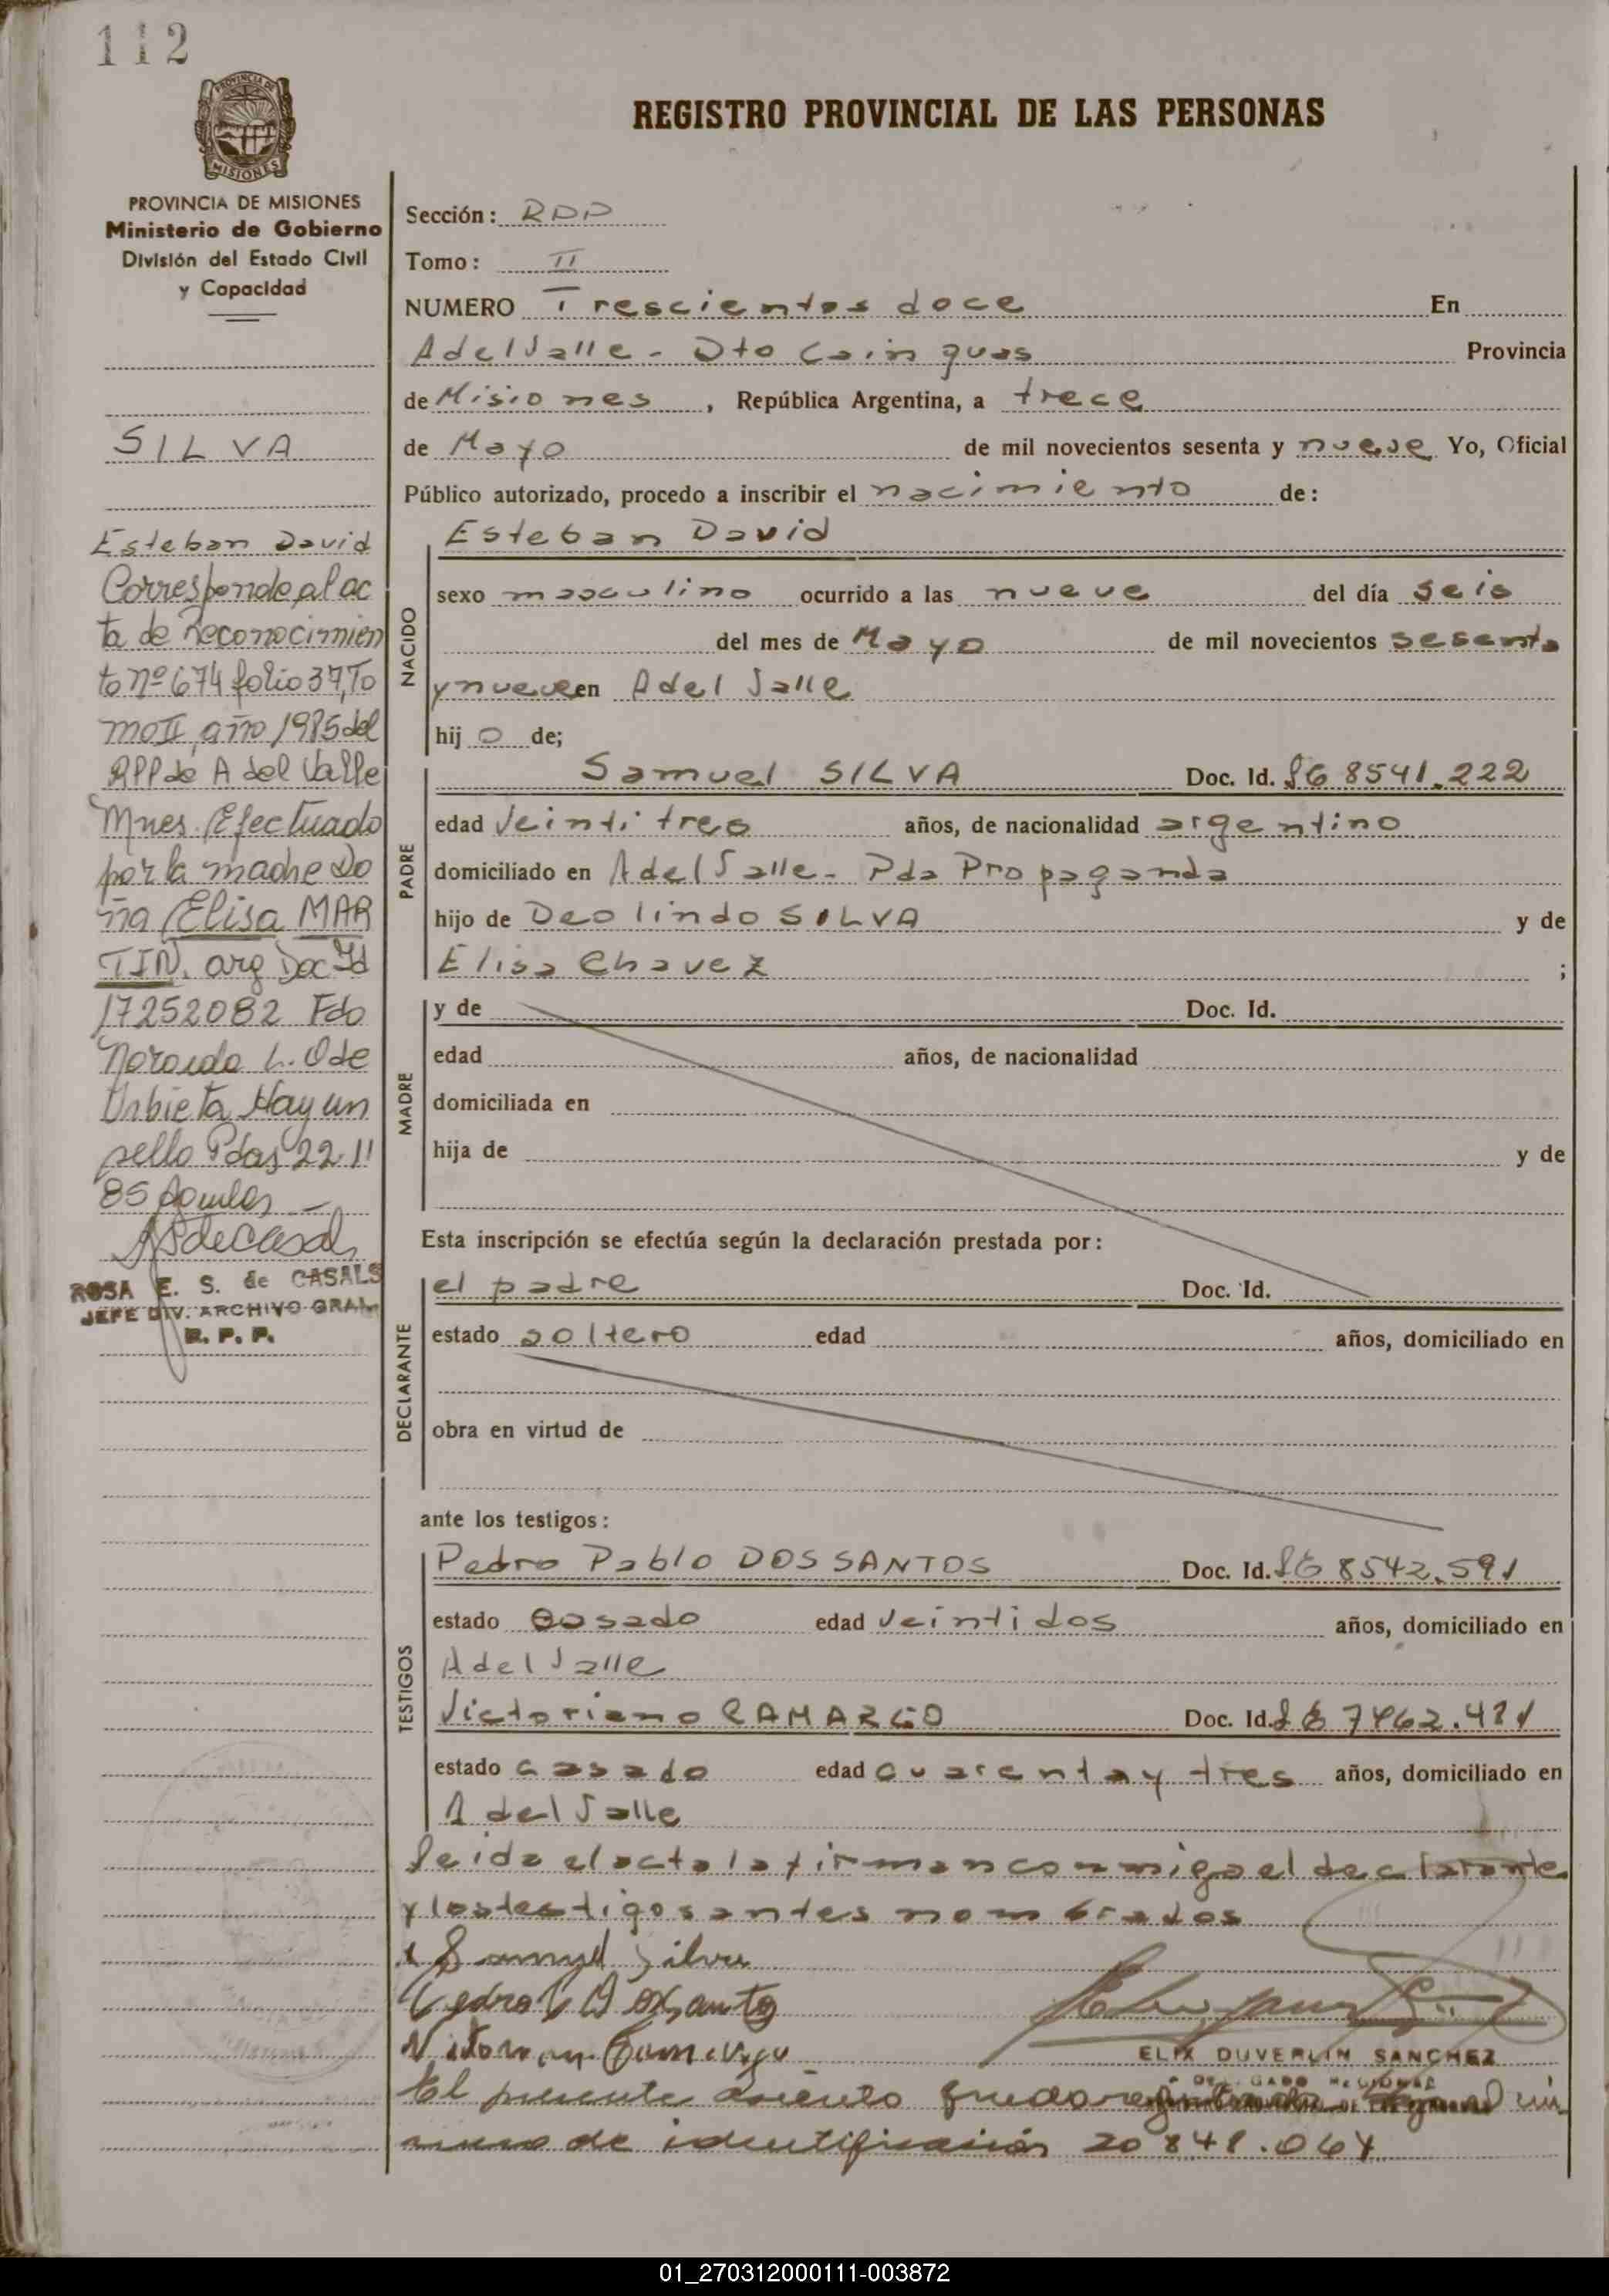 112
PROVINCIA DE
MISIONES
REGISTRO PROVINCIAL DE LAS PERSONAS
PROVINCIA DE MISIONES
Ministerio de Gobierno
División del Estado Civil
y Capacidad
SILVA
Esteban David
Corresponde al ac
ta de Reconocimien
to nº 674 folio 37, To
mo II, año 1985 del
RPP de A del Valle
Mnes. Efectuado
por la madre Do
ña Elisa MAR
TIN. arg Doc Id
17252082 Fdo
L. O de
Urbieta Hay un
sello Pdas 22 11
85
ROSA E. S. de CASALS
JEFE DIV. ARCHIVO GRAL
R. P. P.
Sección: RPP
Tomo: II
NUMERO Trescientos doce En
A del Valle - Dto Cainguas Provincia
de Misiones, República Argentina, a trece
de Mayo de mil novecientos sesenta y nueve Yo, Oficial
Público autorizado, procedo a inscribir el nacimiento de:
NACIDO
Esteban David
sexo masculino ocurrido a las nueve del día seis
del mes de Mayo de mil novecientos sesenta
y nueve en A del Valle
hij o de;
PADRE
Samuel SILVA Doc. Id. 8541.222
edad Veintitres años, de nacionalidad argentino
domiciliado en A del Valle - Pda Propaganda
hijo de Deolindo SILVA y de
Elisa Chavez ;
MADRE
y de Doc. Id.
edad años, de nacionalidad
domiciliada en
hija de y de
Esta inscripción se efectúa según la declaración prestada por:
DECLARANTE
el padre Doc. Id.
estado soltero edad años, domiciliado en
obra en virtud de
ante los testigos:
TESTIGOS
Pedro Pablo DOS SANTOS Doc. Id. 8542.591
estado casado edad Veintidos años, domiciliado en
A del Valle
Victoriano CAMARGO Doc. Id.
estado casado edad cuarenta y tres años, domiciliado en
A del Valle
Leida el acta la firman conmigo el declarante
y los testigos antes nombrados
Samuel Silva
ELIX DUVERLIN SANCHEZ
DELEGADO REGIONAL
El presente asiento queda registrado
de identificación 20 848.064
01_270312000111-003872